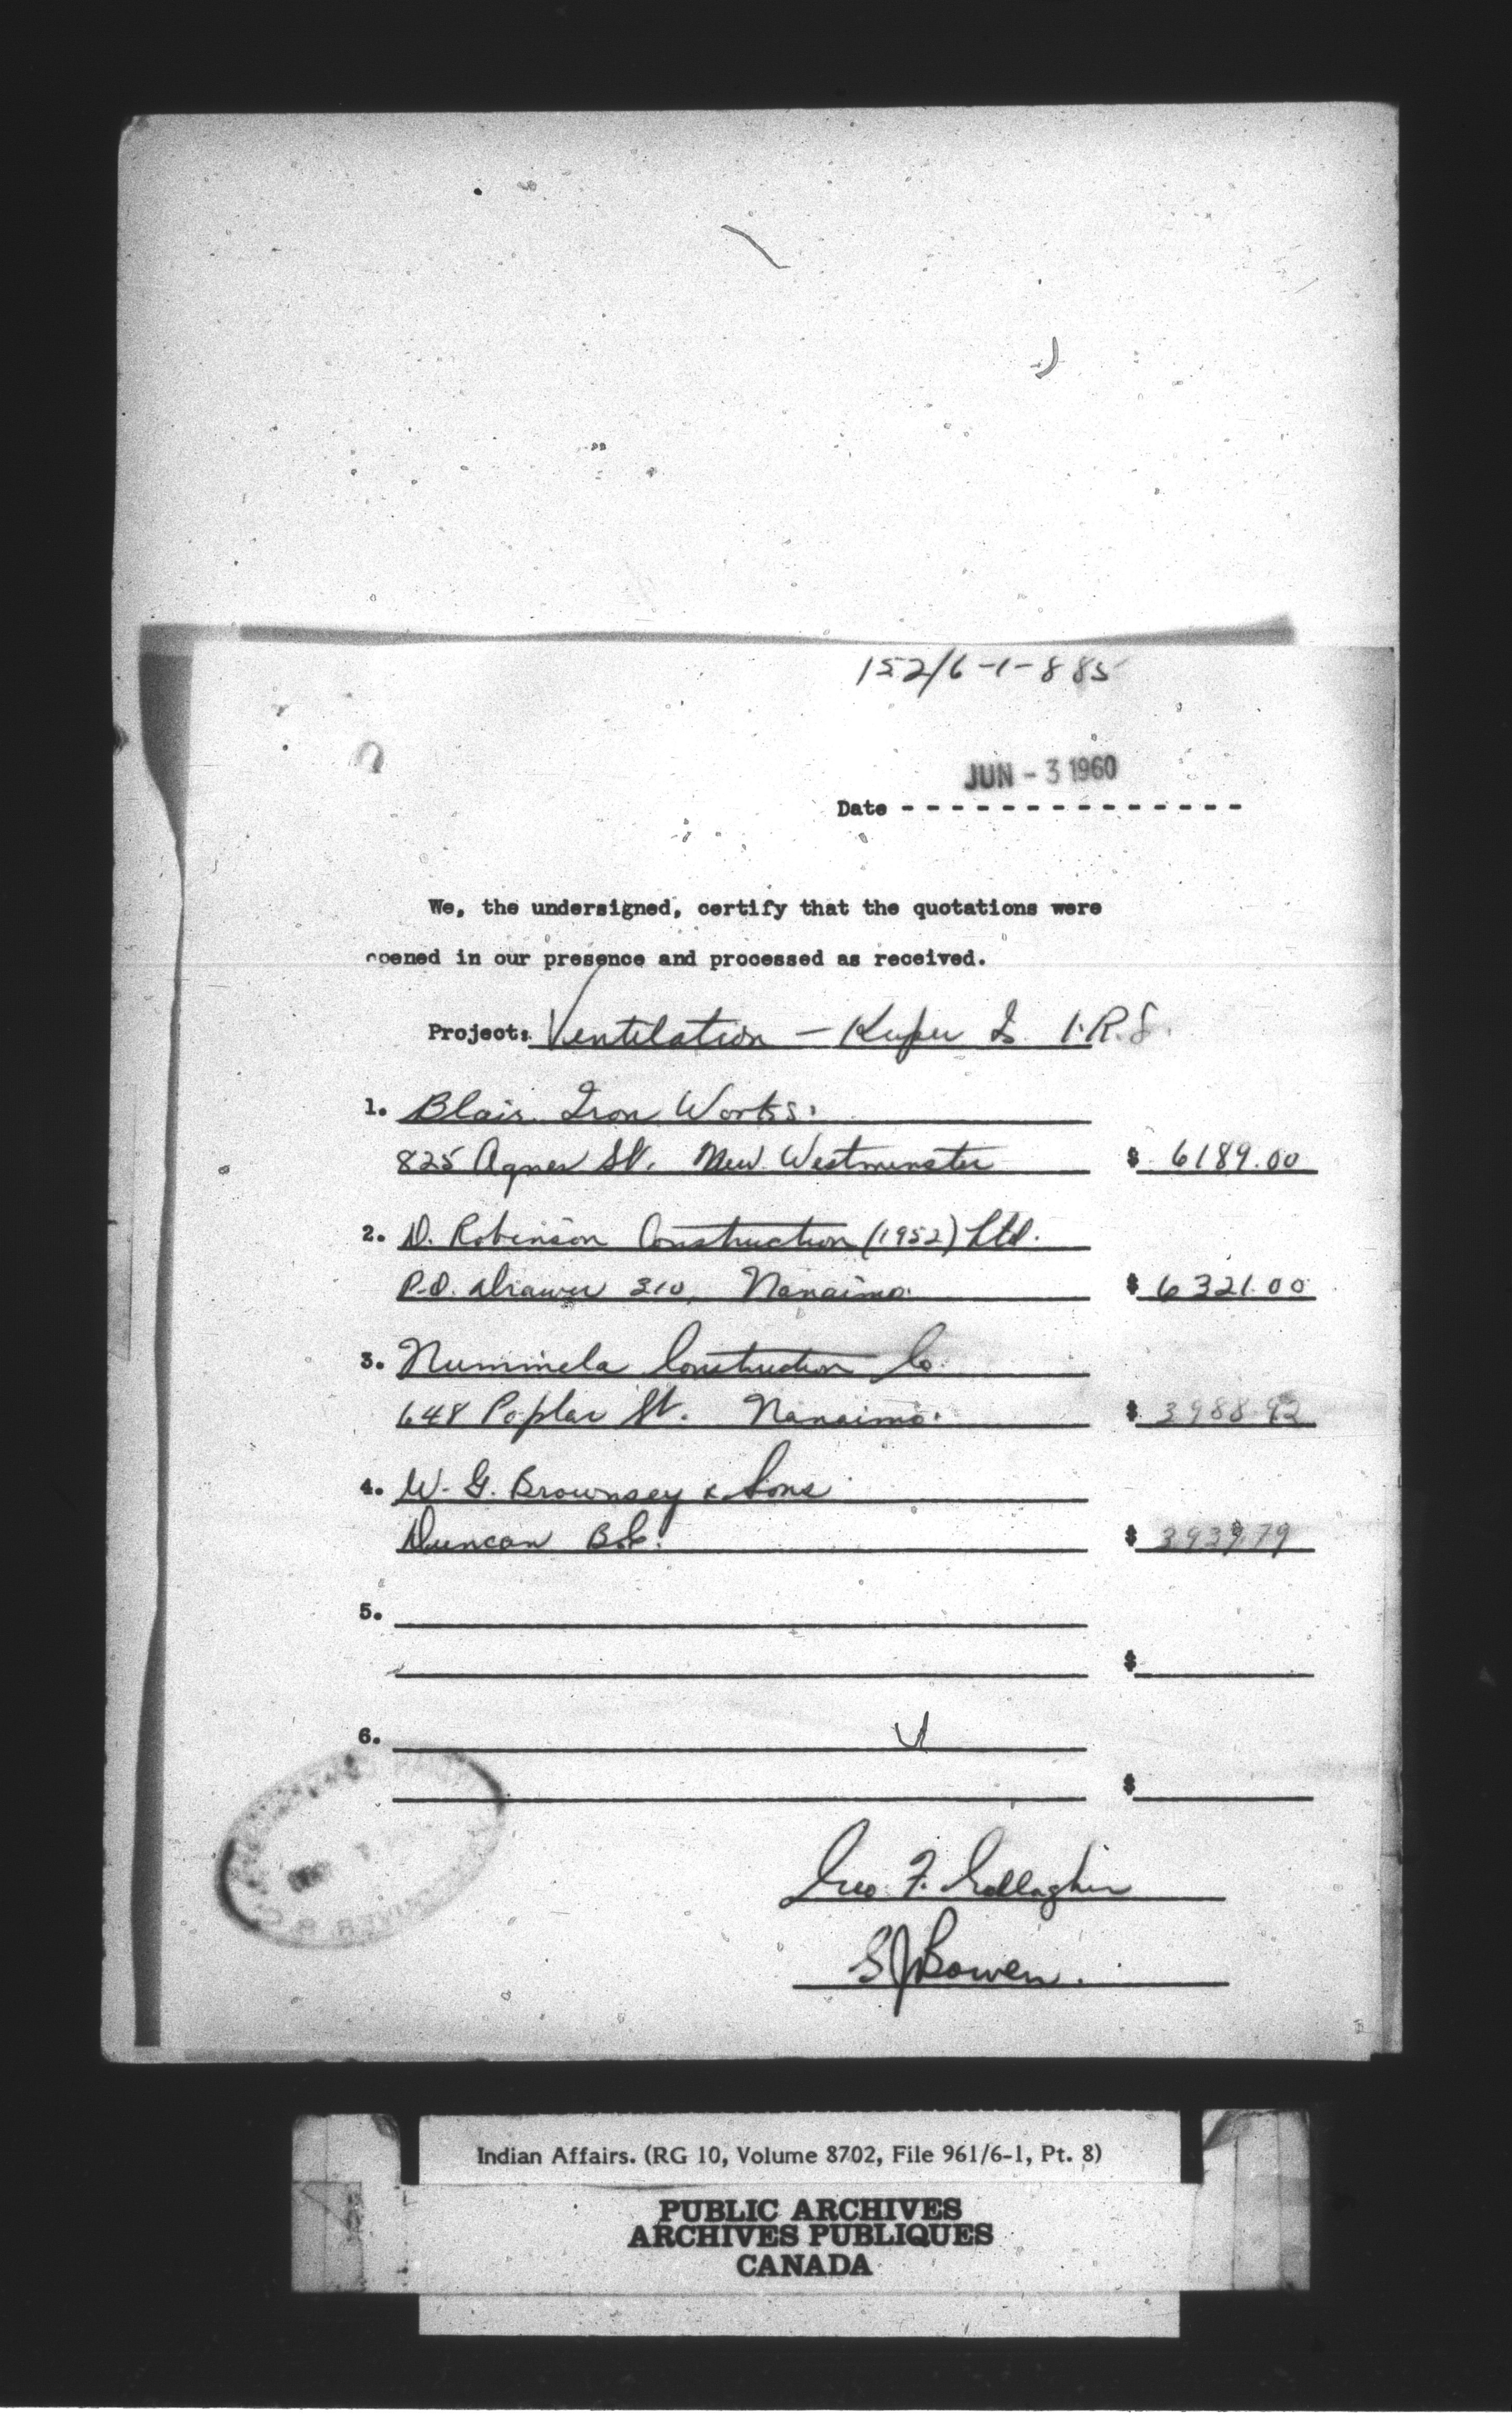 152/6-1-885
JUN - 3 1960
Date - - - - - - - - - - - - - -
We, the undersigned, certify that the quotations were
opened in our presence and processed as received.
Project: Ventilation - Kuper Is. I.R.S.
1. Blair Iron Works.
825 Agnes St. New Westminster $ 6189.00
2. D. Robinson Construction (1952) Ltd.
P.O. Drawer 310, Nanaimo. $ 6321.00
3. Nummela Construction Co.
648 Poplar St. Nanaimo. $ 3988.92
4. W. G. Brownsey & Sons
Duncan B.C. $ 3939.79
5.
$
6.
$
Geo. F. Gallagher
S J Bowen.
Indian Affairs. (RG 10, Volume 8702, File 961/6-1, Pt. 8)
PUBLIC ARCHIVES
ARCHIVES PUBLIQUES
CANADA